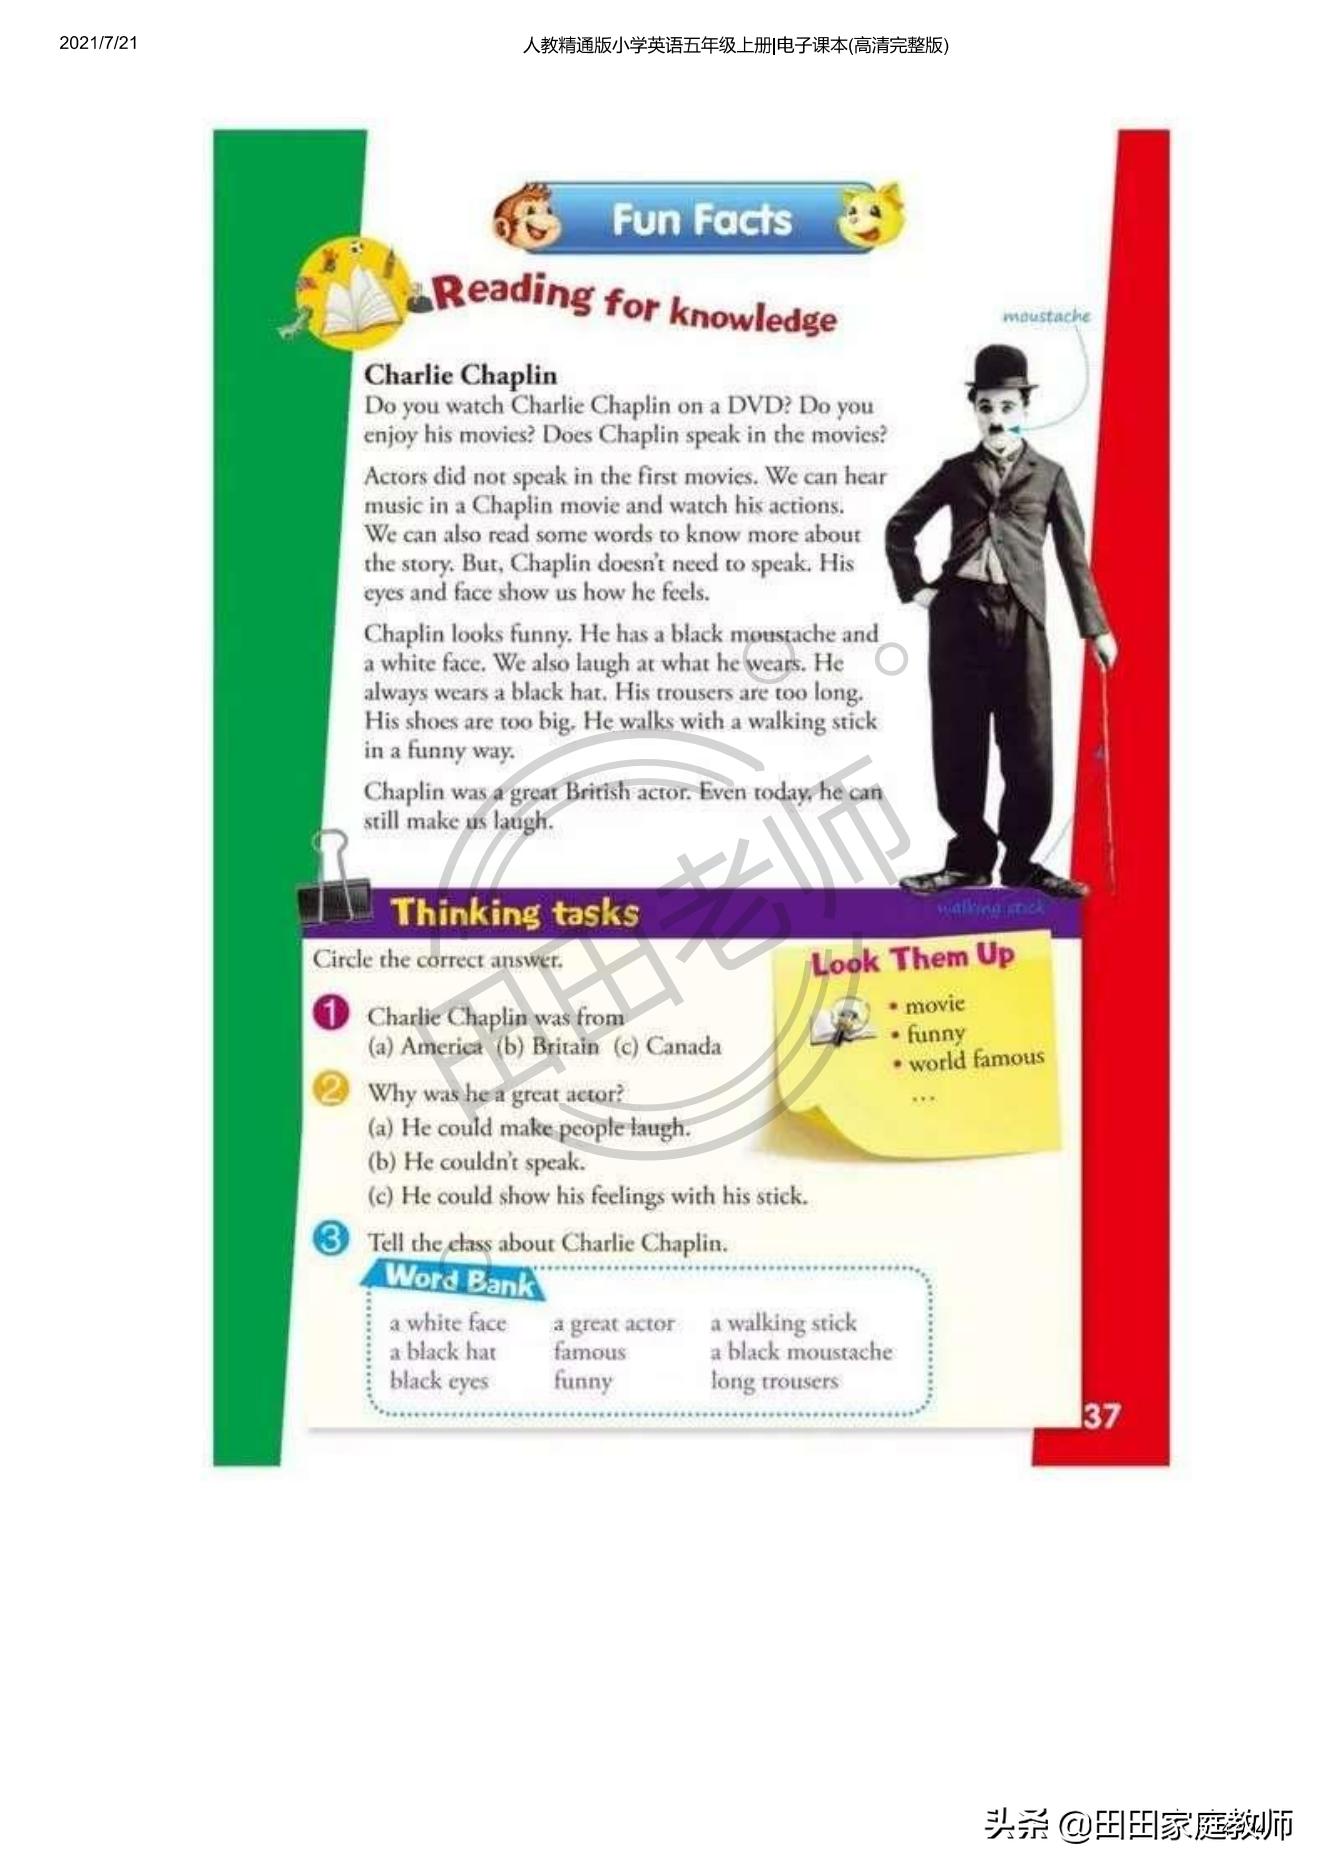 2021/7/21
人教精通版小学英语五年级上册|电子课本(高清完整版)
Fun Facts
Reading for knowledge
moustache
Charlie Chaplin
Do you watch Charlie Chaplin on a DVD? Do you
enjoy his movies? Does Chaplin speak in the movies?
Actors did not speak in the first movies. We can hear
music in a Chaplin movie and watch his actions.
We can also read some words to know more about
the story. But, Chaplin doesn't need to speak. His
eyes and face show us how he feels.
Chaplin looks funny. He has a black moustache and
a white face. We also laugh at what he wears. He
always wears a black hat. His trousers are too long.
His shoes are too big. He walks with a walking stick
in a funny way.
Chaplin was a great British actor. Even today, he can
still make us laugh.
田田老师
walking stick
Thinking tasks
Circle the correct answer.
1 Charlie Chaplin was from
(a) America (b) Britain (c) Canada
2 Why was he a great actor?
(a) He could make people laugh.
(b) He couldn't speak.
(c) He could show his feelings with his stick.
3 Tell the class about Charlie Chaplin.
Look Them Up
• movie
• funny
• world famous
...
Word Bank
a white face a great actor a walking stick
a black hat famous a black moustache
black eyes funny long trousers
37
头条 @田田家庭教师